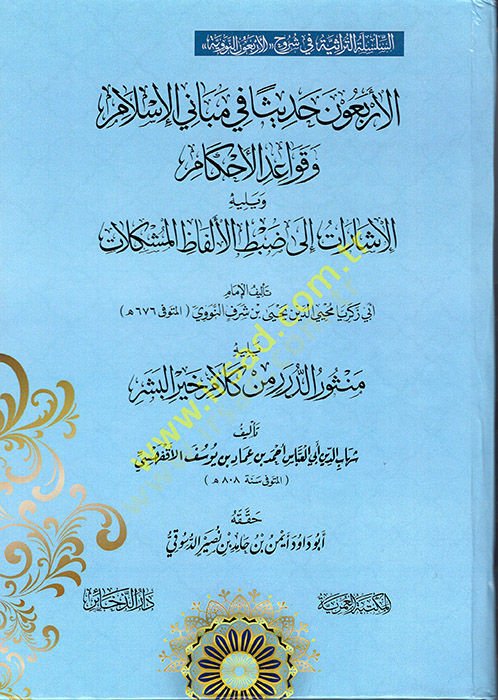 السلسلة التراثية في شروح «الأربعون النووية»
الأربعون حديثا في مباني الإسلام
وقواعد الأحكام
ويليه
الإشارات إلى ضبط الألفاظ المشكلات
تأليف الإمام
أبي زكريا محيي الدين يحيى بن شرف النووي (المتوفى ٦٧٦ هـ)
يليه
منثور الدرر من كلام خير البشر
تأليف
شهاب الدين أبي العباس أحمد بن عماد بن يوسف الأقفهسي
(المتوفى سنة ٨٠٨ هـ)
حققه
أبو داود أيمن بن حامد بن نصير الدسوقي
المكتبة العمرية
دار الذخائر